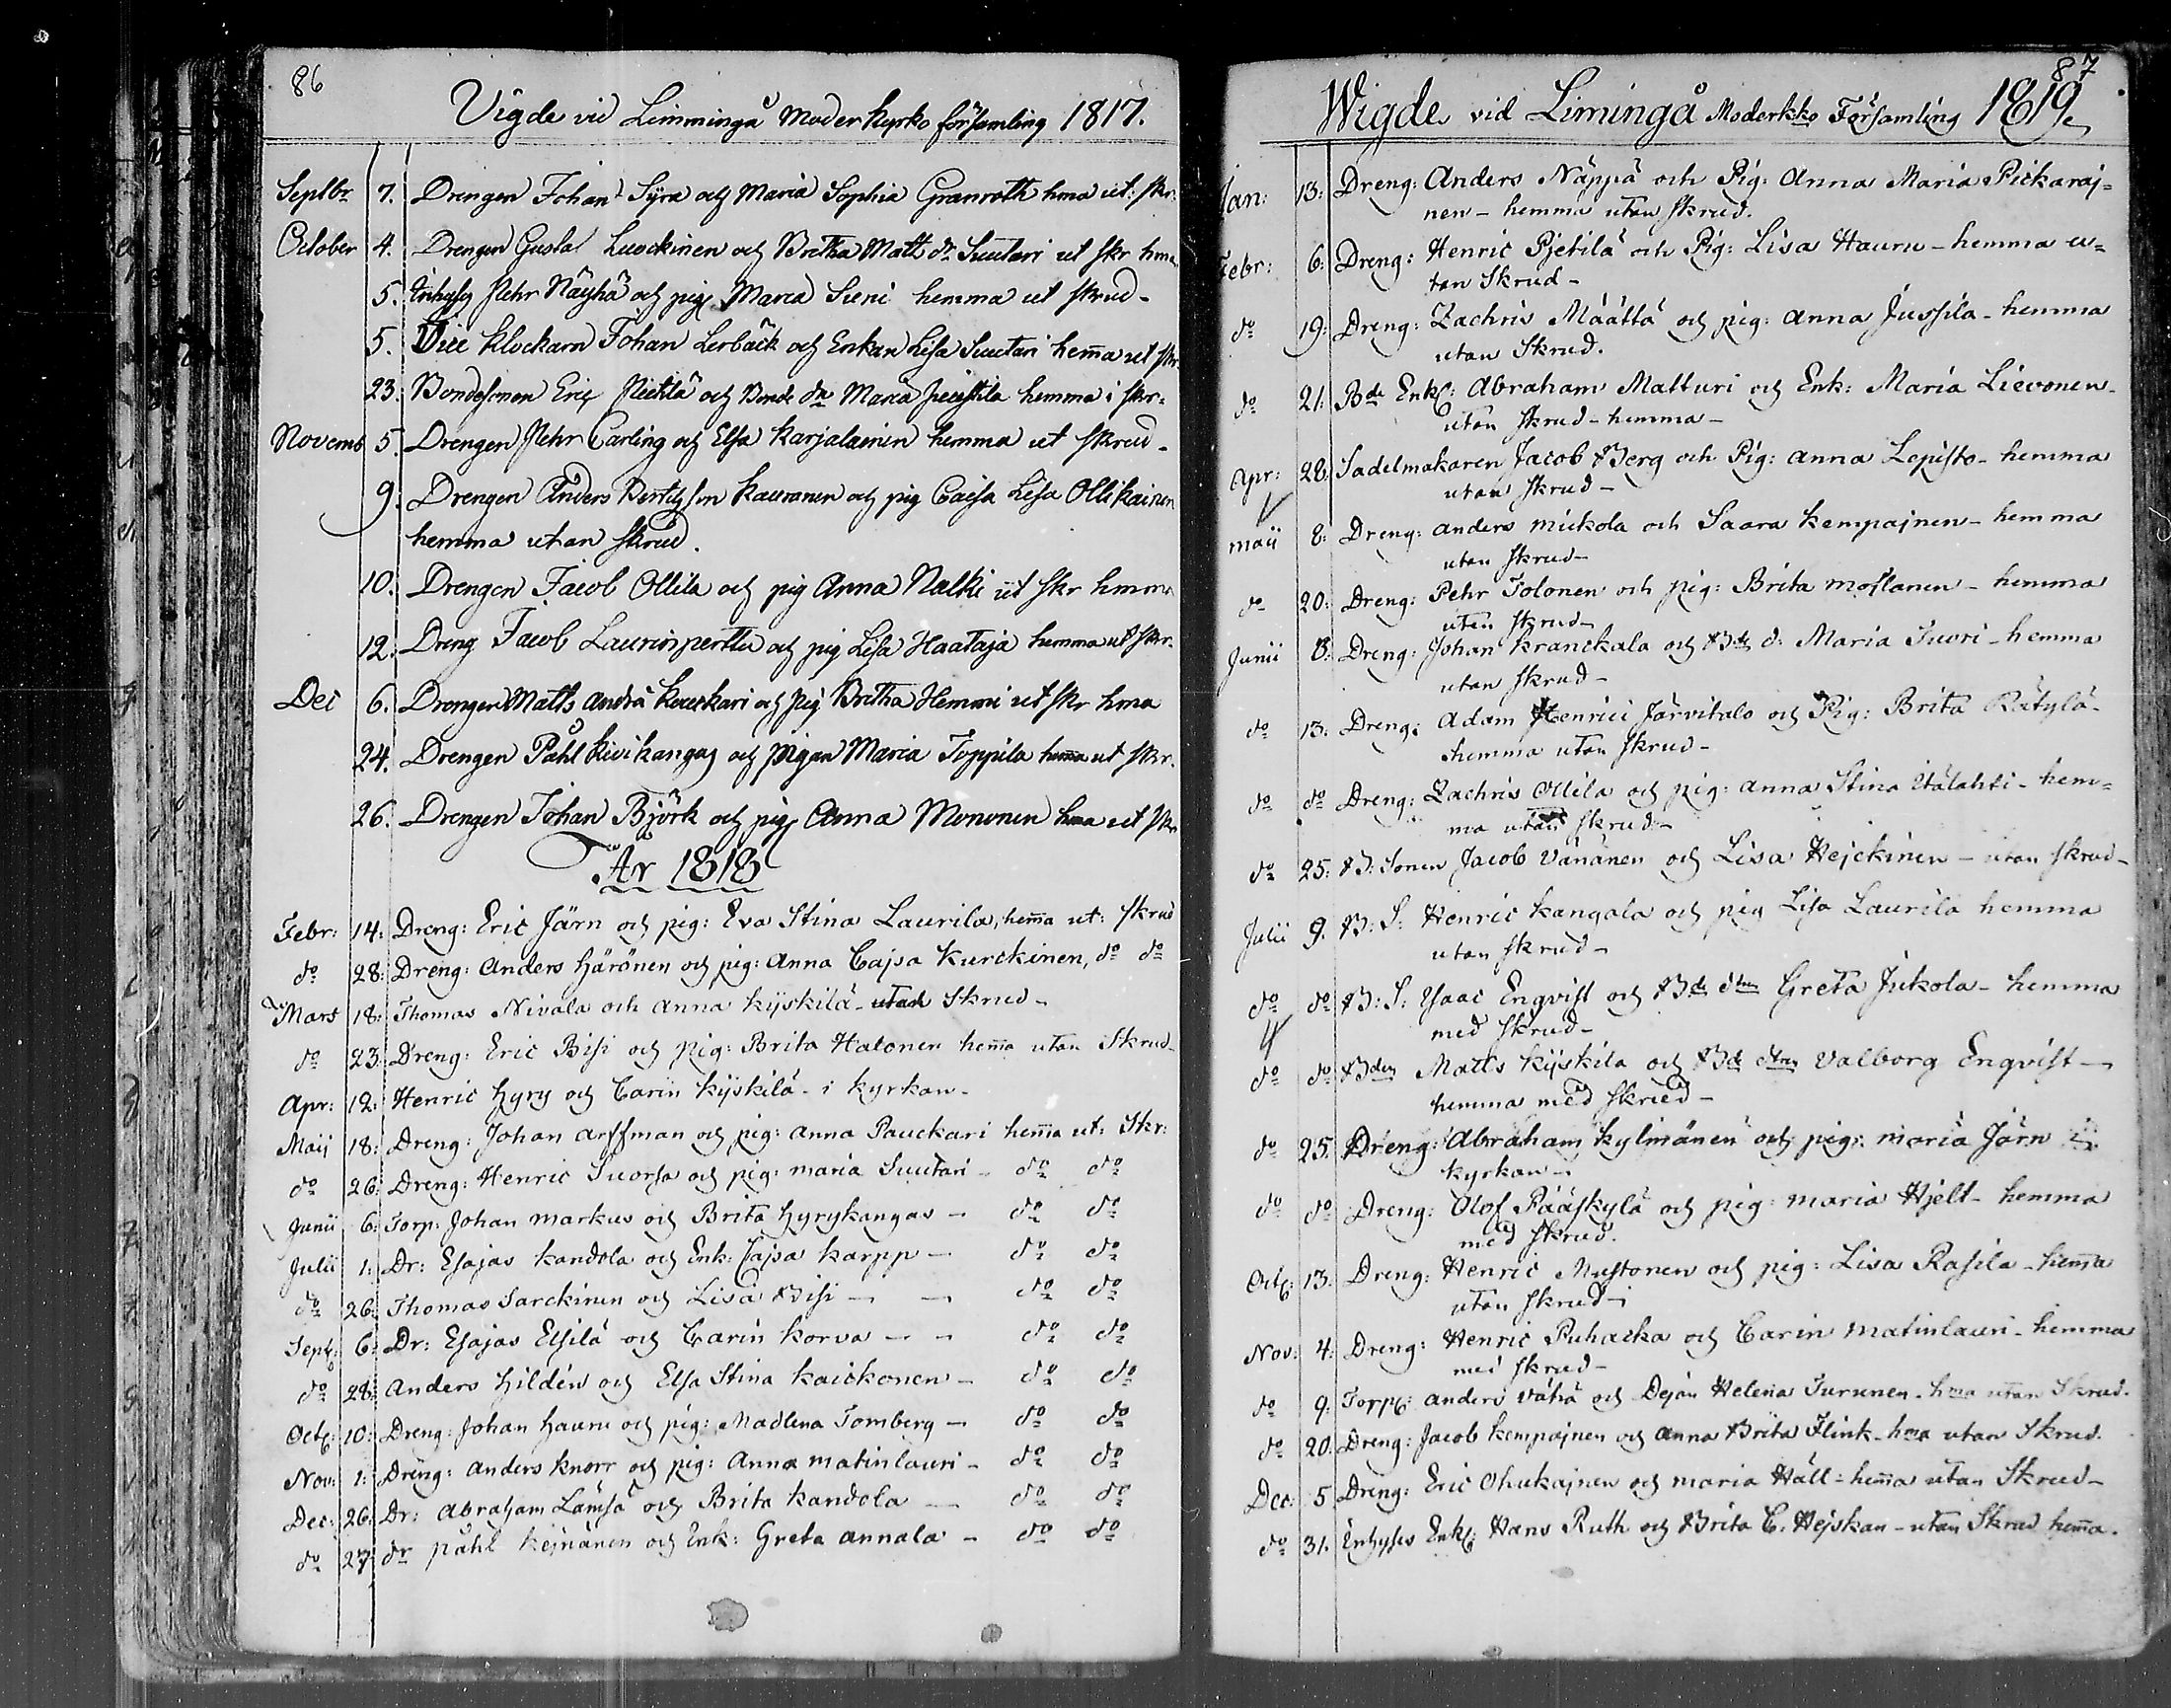 86
Vigde vid Limminga Moderkyrko församling 1817.
Septbr 7. Drengen Johan Syra och Maria Sophia Granroth hma ut: skr:
October 4. Drengen Gustaf Luockinen och Britha Matts dr Suutari ut skr hma
5. Inhyses Pehr Näyhä och pig Maria Sieni hemma ut skrud-
5. Vice klockarn Johan Lerbäck och Enkan Lisa Suutari hem̄a ut skr
23. Bondesonen Eric Pietilä och Bonde dr Maria Juustila hemma i skr-
Novemb 5. Drengen Pehr Carling och Elsa Karjalainen hemma ut skrud-
9. Drengen Anders Bertilsson Kauranen och pig Caisa Lisa Ollikainen
hemma utan skrud.
10. Drengen Jacob Ollila och pig Anna Nalki ut skr hmma
12. Dreng Jacob Laurinperttu och pig Lisa Haataja hemma ut skr.
Dec 6. Drengen Matts Andrs Keuckari och pig Britha Hemmi ut skr hma
24. Drengen Påhl Kivikangas och pigan Maria Toppila hem̄a ut skr.
26. Drengen Johan Björk och pig Anna Mononen hma ut skr
År 1818
Febr: 14: Dreng: Eric Järn och pig: Eva Stina Laurila, hem̄a ut: skrud
do 28: Dreng: Anders Härönen och pig: Anna Cajsa Kurckinen, do do
Mars 18: Thomas Nivala och Anna Kyskilä- utan Skrud-
do 23: Dreng: Eric Bisi och Pig: Brita Halonen hem̄a utan Skrud-
Apr: 12: Henric Hyry och Carin Kyskilä- i kyrkan-
Maij 18: Dreng: Johan Arffman och pig: Anna Pauckari hem̄a ut: Skr:
do 26: Dreng: Henric Suorsa och pig: Maria Suutari- do do
Junii 6: Torp: Johan Markus och Brita Hyrykangas- do do
Julii 1: Dr: Esajas Kandola och Enk: Cajsa Karpp- do do
do 26: Thomas Sarckinen och Lisa Bisi - - do do
Sept: 6: Dr: Esajas Elsilä och Carin Korva - - do do
do 28: Anders Hildén och Elsa Stina Kaickonen- do do
Oct: 10: Dreng: Johan Hauru och pig: Madlena Tomberg- do do
Nov: 1: Dreng: Anders Knorr och pig: Anna Matinlauri- do do
Dec: 26: Dr: Abraham Lämsä och Brita Kandola- do do
do 27: dr Påhl Kejnänen och Enk: Greta Annala- do do
87
Wigde vid Limingå Moderkko Församling 1819.
Jan: 13: Dreng: Anders Näppä och Pig: Anna Maria Pickaraj=
nen- hemma utan skrud.
Febr: 6: Dreng: Henric Pjetilä och Pig: Lisa Hauru- hemma u=
tan Skrud-
do 19: Dreng: Zachris Määttä och pig: Anna Jussila- hemma
utan Skrud.
do 21: Bde Enkl: Abraham Matturi och Enk: Maria Lievonen-
utan skrud- hemma-
Apr: 28: Sadelmakaren Jacob Berg och Pig: Anna Lepisto- hemma
utan skrud-
Maij 8: Dreng: Anders Mickola och Saara Kempajnen- hemma
utan skrud-
do 20: Dreng: Pehr Tolonen och pig: Brita Moilanen- hemma
utan skrud-
Junii 8: Dreng: Johan Kranckala och Bde d. Maria Juori- hemma
utan skrud-
do 13: Dreng: Adam Henrici Järvitalo och Pig: Brita Rätylä-
hemma utan skrud-
do do Dreng: Zachris Ollila och pig: Anna Stina Ylälahti- hem=
ma utan skrud-
do 25: B: Sonen Jacob Vänänen och Lisa Hejckinen- utan skrud-
Julii 9. B: S: Henric Kangala och pig Lisa Laurila hemma
utan skrud-
do do B: S: Isaac Enqvist och Bde dtren Greta Jukola- hemma
med skrud-
do do Bden Matts Kyskilä och Bde dtren Valborg Enqvist-
hemma med skrud-
do 25. Dreng: Abraham Kylmänen och pig: Maria Järn i
kyrkan-
do do Dreng: Olof Pääskylä och pig: Maria Hjelt- hemma
med skrud.
Oct: 13. Dreng: Henric Mustonen och pig: Lisa Rasila- hem̄a
utan skrud-
Nov: 4: Dreng: Henric Puhacka och Carin Matinlauri- hemma
med skrud-
do 9. Torp: Anders Vähä och Dejan Helena Turunen- hma utan Skrud.
do 20. Dreng: Jacob Kempajnen och Anna Brita Flink- hma utan Skrud.
Dec: 5 Dreng: Eric Ohukajnen och Maria Häll- hem̄a utan Skrud-
do 31. Inhyses Enkl: Hans Ruth och Brita C. Hejskan- utan Skrud hem̄a.